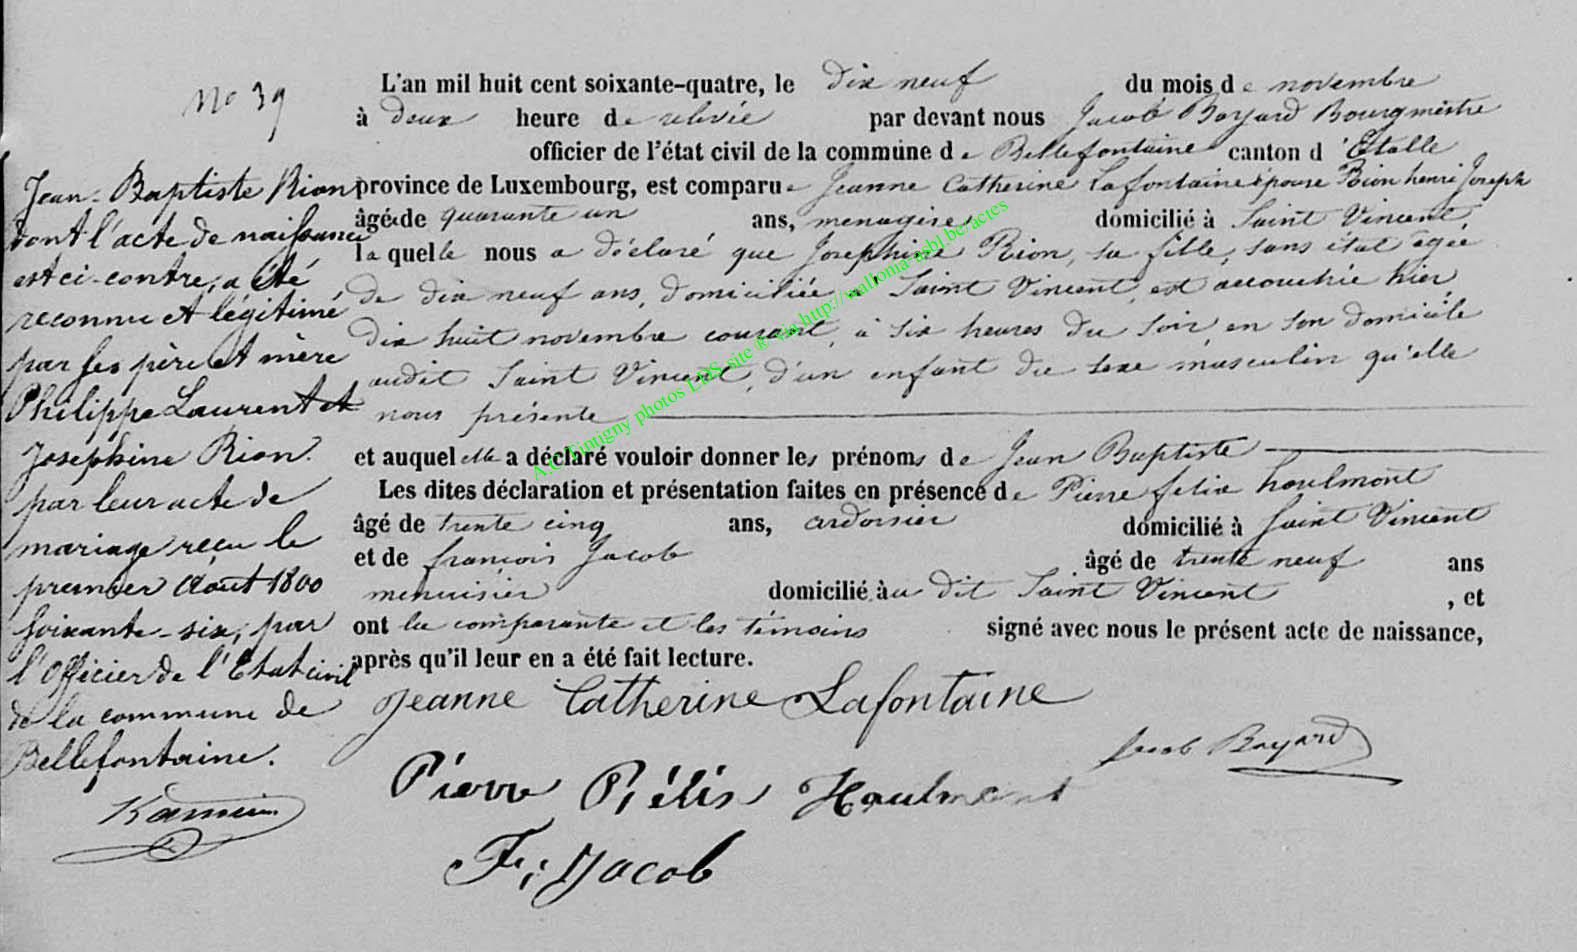 No 39
Jean-Baptiste Rion
dont l'acte de naissance
est ci-contre, a été
reconnu et légitimé
par ses père et mère
Philippe Laurent et
Josephine Rion.
par leur acte de
mariage reçu le
premier Août 1800
soixante-six, par
l'Officier de l'Etat civil
de la commune de
Bellefontaine.
L'an mil huit cent soixante-quatre, le dix neuf du mois de novembre
à deux heure de relevée par devant nous Jacob Bayard Bourgmestre
officier de l'état civil de la commune de Bellefontaine canton d'Etalle
province de Luxembourg, est comparue Jeanne Catherine Lafontaine épouse Rion henri Joseph
âgée de quarante un ans, menagère domicilié à Saint Vincent
la quelle nous a déclaré que Josephine Rion, sa fille, sans état âgée
de dix neuf ans, domiciliée à Saint Vincent, est accouchée hier
dix huit novembre courant, à six heures du soir, en son domicile
audit Saint Vincent, d'un enfant du sexe masculin qu'elle
nous présente
et auquel elle a déclaré vouloir donner les prénoms de Jean Baptiste
Les dites déclaration et présentation faites en présence de Pierre felix houlmont
âgé de trente cinq ans, ardoisier domicilié à Saint Vincent
et de françois Jacob âgé de trente neuf ans
menuisier domicilié à au dit Saint Vincent, et
ont la comparante et les témoins signé avec nous le présent acte de naissance,
après qu'il leur en a été fait lecture.
Jeanne Catherine Lafontaine
Jacob Bayard
Pierre Félix Houlmont
F; Jacob
A.C Tintigny photos LDS site ® via http://wallonia-asbl.be/actes